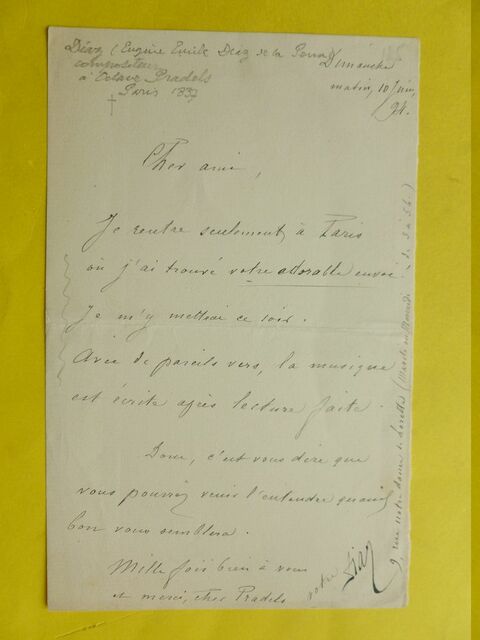 Diaz (Eugène Emile Diaz de la Pena)
compositeur
à Octave Pradels
Paris 1837
Dimanche
matin, 10 Juin,
94.
Cher ami,
Je rentre seulement à Paris
où j'ai trouvé votre adorable envoi
Je m'y mettrai ce soir.
Avec de pareils vers, la musique
est écrite après lecture faite.
Donc, c'est vous dire que
vous pourrez venir l'entendre quand
bon vous semblera.
Mille fois bien à vous
et merci, cher Pradels
votre Diaz
9, rue notre dame de lorette (Mardi ou Mercredi de 5 à 6 h.)